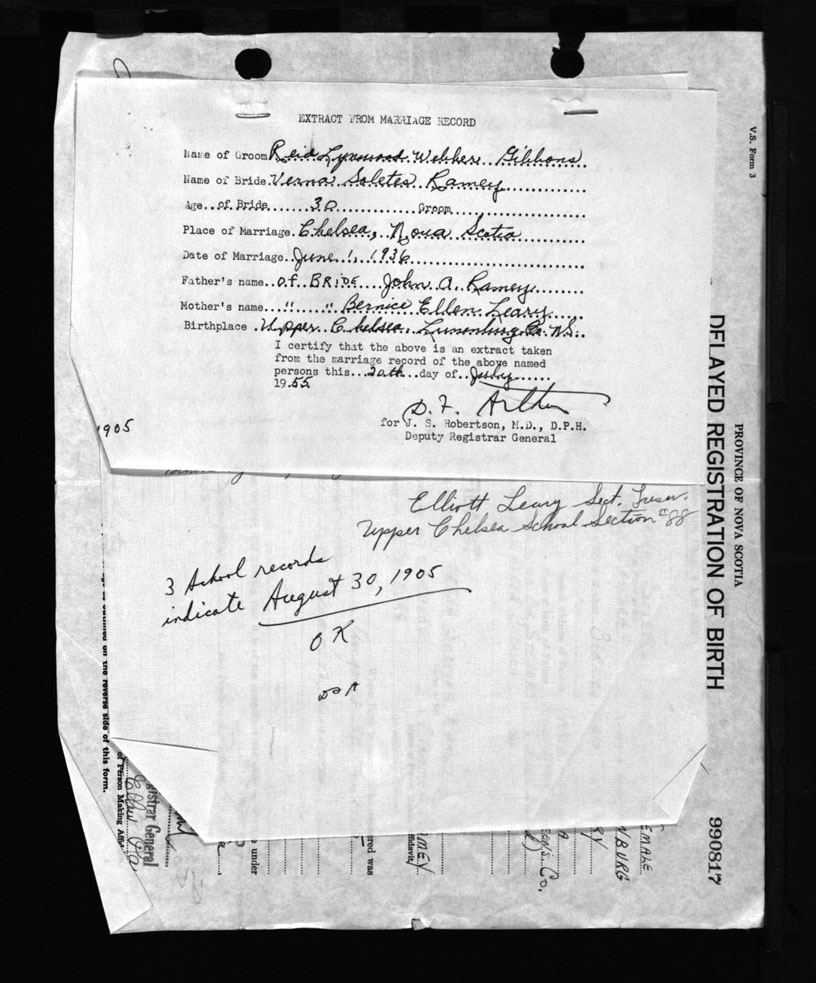 EXTRACT FROM MARRIAGE RECORD
Name of Groom Reid Lynwood Webber Gibbons
Name of Bride Verna Soletes Ramey
Age of Bride 30 Groom
Place of Marriage Chelsea, Nova Scotia
Date of Marriage June 1, 1936
Father's name of BRIDE John A. Ramey
Mother's name " " Bernice Ellen Leary
Birthplace Upper Chelsea, Lunenburg Co. N.S.
I certify that the above is an extract taken
from the marriage record of the above named
persons this 20th day of July
1955
D. F. Arthur
for J. S. Robertson, M.D., D.P.H.
Deputy Registrar General
1905
Elliott Leary Sect. Treser.
Upper Chelsea School Section #88
3 School records
indicate August 30, 1905
OK
V.S. Form 3
PROVINCE OF NOVA SCOTIA
DELAYED REGISTRATION OF BIRTH
990817
on the reverse side of this form.
of Person Making
istrar General
under
ered was
ffidavit
AMEY
Co.
NBURG
EMALE